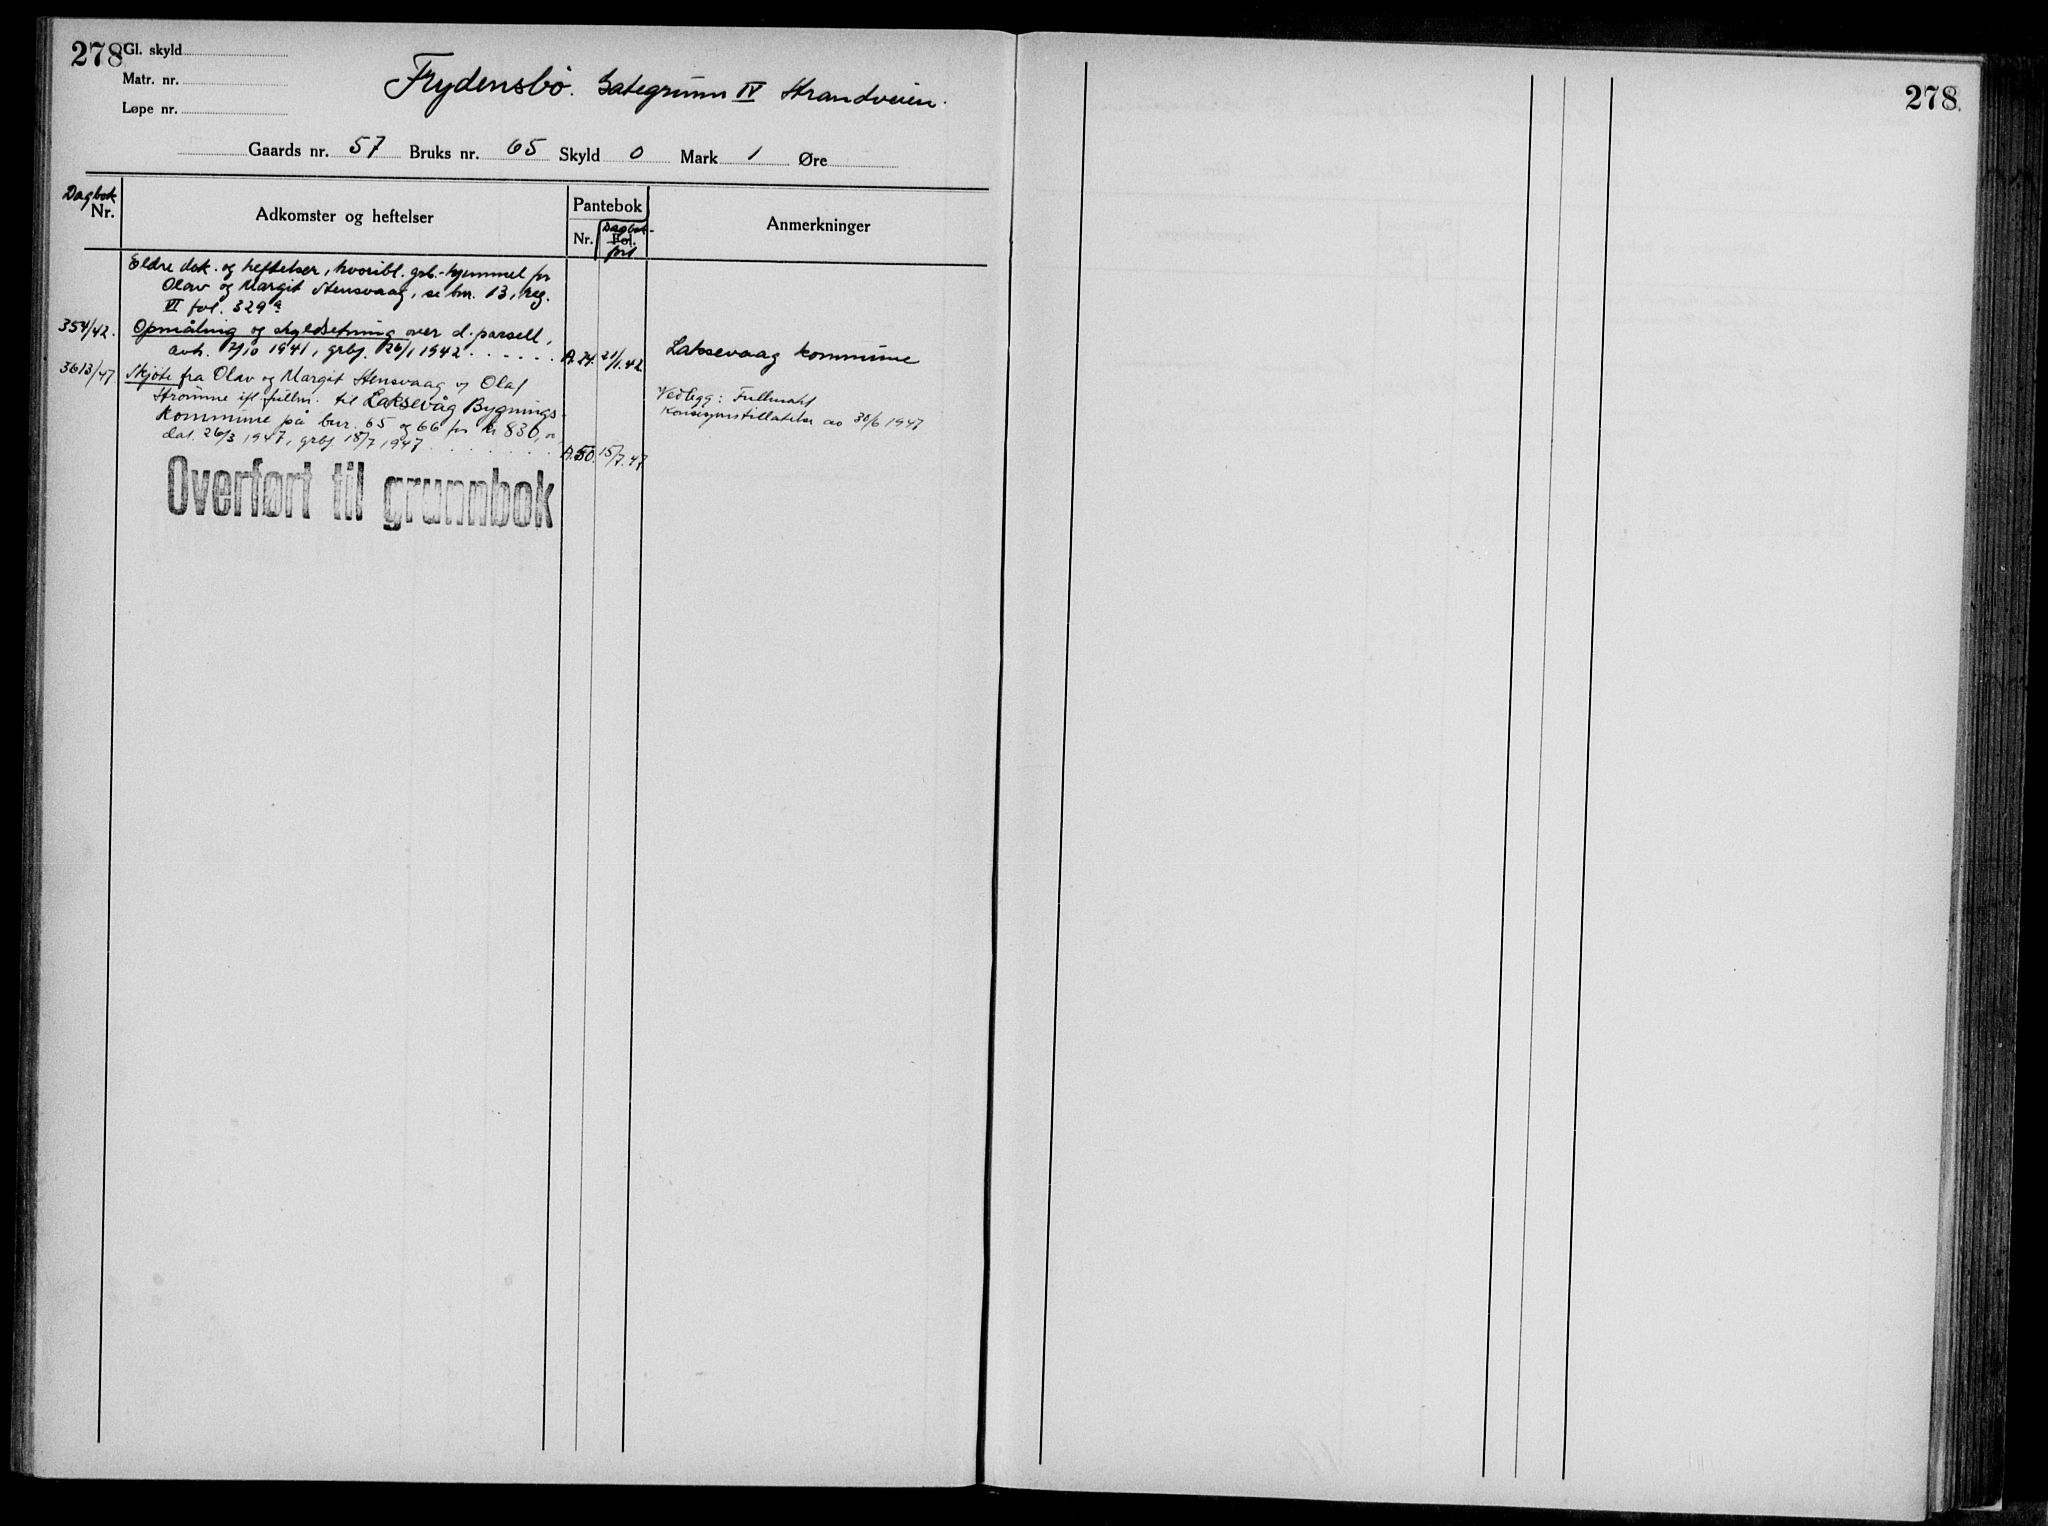 278 Gl. skyld
Matr. nr.
Løpe nr.
Frydensbø. Gategrunn IV Strandveien.
Gaards nr. 57 Bruks nr. 65 Skyld 0 Mark 1 Øre
Dagbok Nr.
Adkomster og heftelser
Pantebok
Nr.
Fol.
Dagbok-
ført
Anmerkninger
Eldre dok. og heftelser, hvoribl. grb.-hjemmel for
Olav og Margit Stensvaag, se bnr. 13, reg.
VI fol. 329a
354/42. Opmåling og skyldsetning over d. parsell,
avh. 7/10 1941, grbf. 26/1 1942 . . . . . . A. 24. 21/1.42.
Laksevaag kommune
3613/47. Skjøte fra Olav og Margit Stensvaag v/ Olaf
Strømme ifl. fullm. til Laksevåg Bygnings-
kommune på bnr. 65 og 66 for kr 830,
dat. 26/3 1947, grbf. 18/7 1947 . . . . . . . A. 50. 15/7.47
Vedlegg: Fullmakt
Konsesjonstillatelse av 30/6 1947
Overført til grunnbok
278